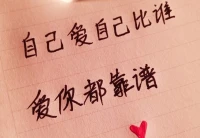 自己爱自己比谁
爱你都靠谱